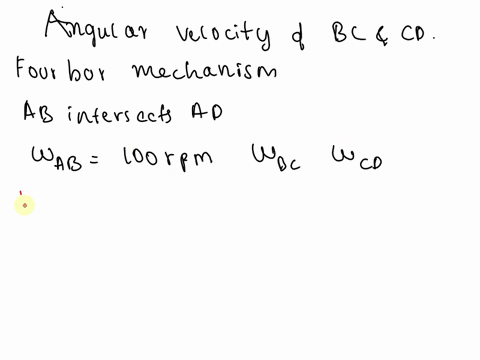 Angular velocity of BC & CD.
Four bar mechanism
AB intersects AD
ω_AB = 100 rpm ω_BC ω_CD